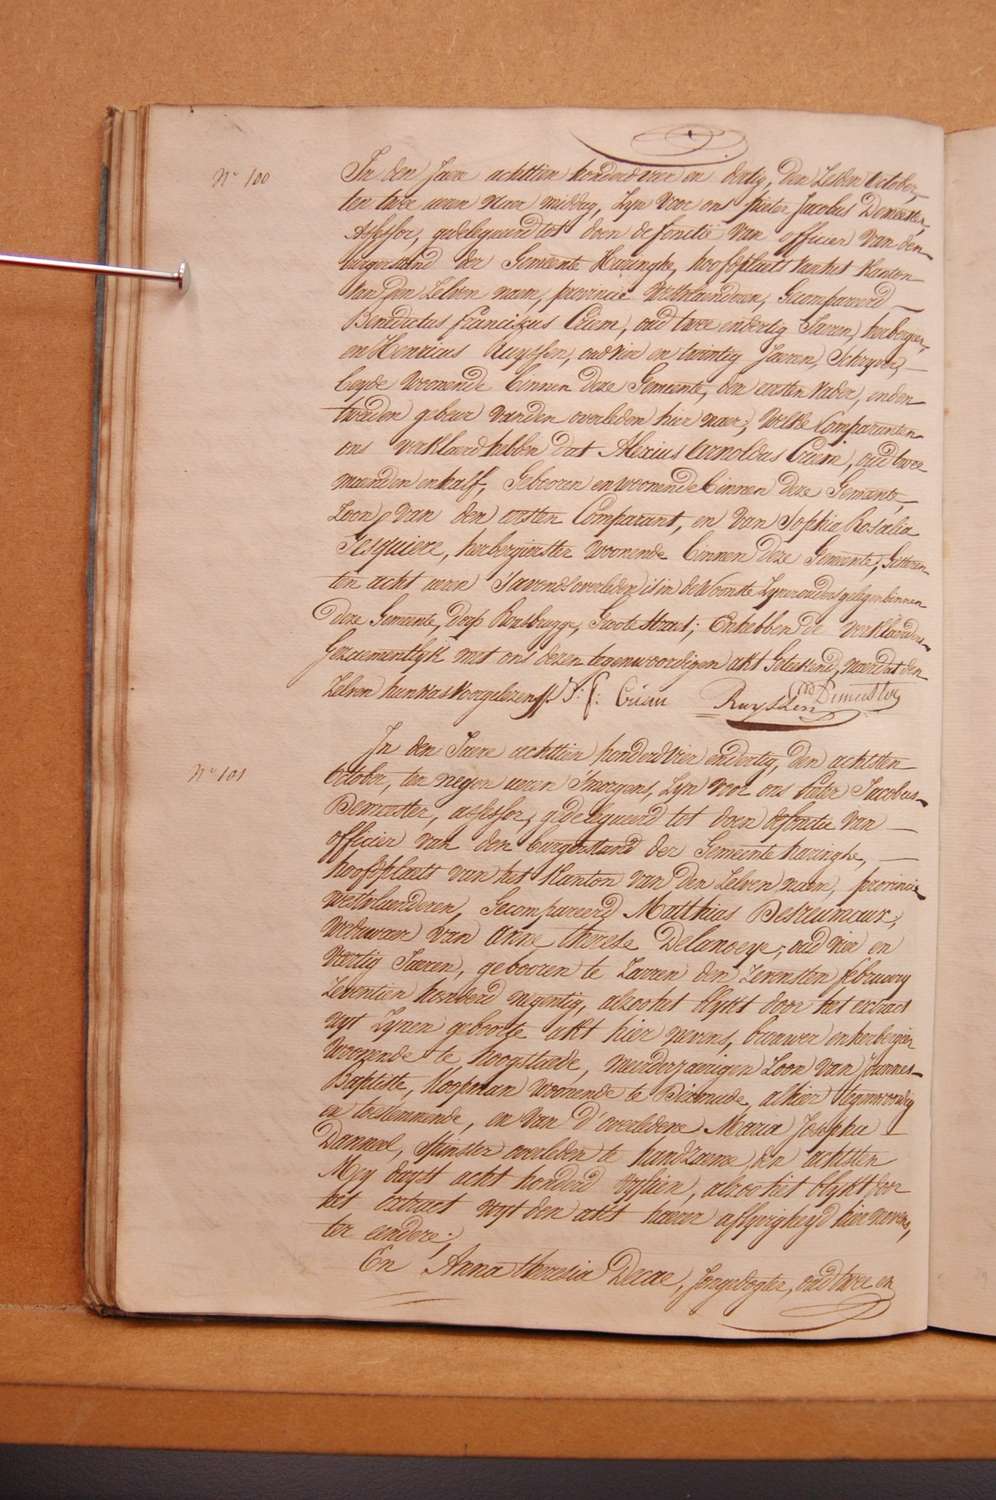 N° 100
In den Jare achttien honderd vier en dertig, den zesden October,
ten twee uren naer middag, zyn voor ons pieter Jacobus Demeester
Assessor, gedelegueerd tot doen de fonctie van officier van den
burgerstand der Gemeente Haringhe, hoofdplaets van het Kanton
van den zelven naem, provincie Westvlaenderen, Gecompareerd
Benedictus franciscus Criem, oud twee en dertig Jaeren, herbergier,
en Henricus Ruyssen, oud vier en twintig Jaeren, Schryver,
beyde woonende binnen deze Gemeente, den eersten vader, en den
tweeden gebuer van den overleden hier naer; welke Comparanten
ons verklaerd hebben dat Alexius Arnoldus Criem, oud twee
maenden en half, Gebooren en woonende binnen deze Gemeente,
zoon van den eersten Comparant, en van Sophia Rosalia
Gesquiere, herbergierster woonende binnen deze Gemeente, Gisteren
ten acht uren 's avonds overleden is in de Woonste zyner ouders gelegen binnen
deze Gemeente, dorp Rousbrugge, Groote straet; En hebben de verklaerders
Gezaementlyk met ons dezen tegenwoordigen akt Geteekend, naer dat den
zelven hun was voorgelezen //. B: f: Criem Ruyssen PDemeester
N° 101
In den Jaere achttien honderd vier en dertig, den achtsten
October, ten negen uren 's morgens, zyn voor ons Pieter Jacobus
Demeester, assessor, gedelegueerd tot doen de fonctie van
officier van den burgerstand der Gemeente haringhe,
hoofdplaets van het Kanton van den zelven naem, provincie
westvlaenderen, Gecompareerd Matthias Desrumaux,
weduwaer van Anne therese Delanoeye, oud vier en
veertig Jaeren, gebooren te Zarren den zevensten february
zeventien honderd negentig, alzoo het blykt door het extract
uyt zynen geboorte akt hier nevens, brouwer en herbergier
woonende te hoogstaede, meerderjaerigen zoon van Joannes
Baptiste, Koopman woonende te Dixmude, alhier tegenwoordig
en toestemmende, en van d'overledene Maria Josepha
Danneel, spinster overleden te handzaeme den achtsten
Mey duyst acht honderd vyftien, alzoo het blykt door
het extract uyt den akt haerer aflyvigheyd hier nevens,
ter eendere;
En Anna theresia Decae, Jongedogter, oud twee en